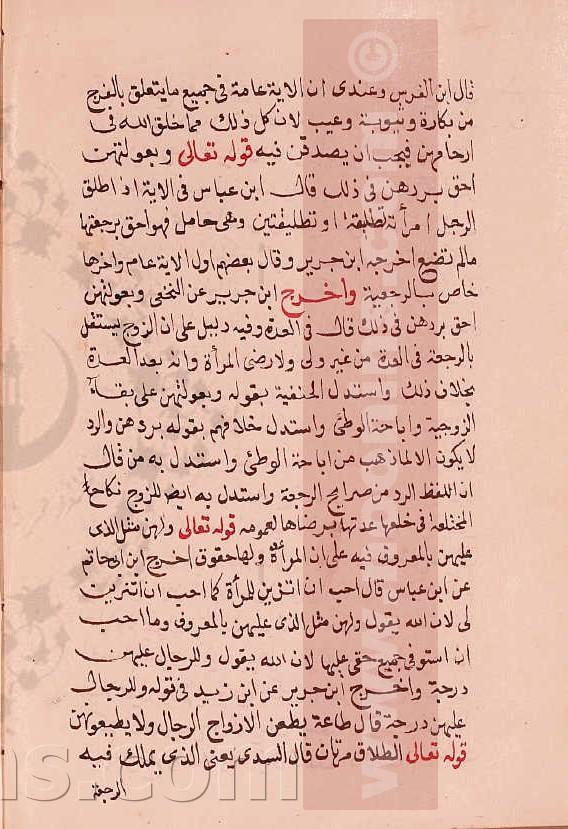 قال ابن الفرس وعندى ان الاية عامة فى جميع ما يتعلق بالفرج
من بكارة وثيوبة وعيب لان كل ذلك مما خلق الله فى
ارحامهن فيجب ان يصدقن فيه قوله تعالى وبعولتهن
احق بردهن فى ذلك قال ابن عباس فى الاية اذا طلق
الرجل امرأته تطليقة او تطليقتين وهى حامل فهو احق برجعتها
مالم تضع اخرجه ابن جرير وقال بعضهم اول الاية عام واخرها
خاص بالرجعية واخرج ابن جرير عن النخعى وبعولتهن
احق بردهن فى ذلك قال فى العدة وفيه دليل على ان الزوج يستقل
بالرجعة فى العدة من غير ولى ولا رضى المرأة وانه بعد العدة
بخلاف ذلك واستدل الحنفية بقوله وبعولتهن على بقاء
الزوجية واباحة الوطئ واستدل خلافهم بقوله بردهن والرد
لا يكون الا لما ذهب من اباحة الوطئ واستدل به من قال
ان اللفظ الرد من صرايح الرجعة واستدل به ايضا للزوج نكاح
المختلعة فى خلعها عدتها برضاها لعمومه قوله تعالى ولهن مثل الذى
عليهن بالمعروف فيه على ان المرأة ولها حقوق اخرج ابن ابى حاتم
عن ابن عباس قال احب ان اتزين للمرأة كما احب ان تتزين
لى لان الله يقول ولهن مثل الذى عليهن بالمعروف وما احب
ان استوفى جميع حقى عليها لان الله يقول وللرجال عليهن
درجة واخرج ابن جرير عن ابن زيد فى قوله وللرجال
عليهن درجة قال طاعة يطعن الازواج الرجال ولا يطيعونهن
قوله تعالى الطلاق مرتان قال السدى يعنى الذى يملك فيه
الرجعة